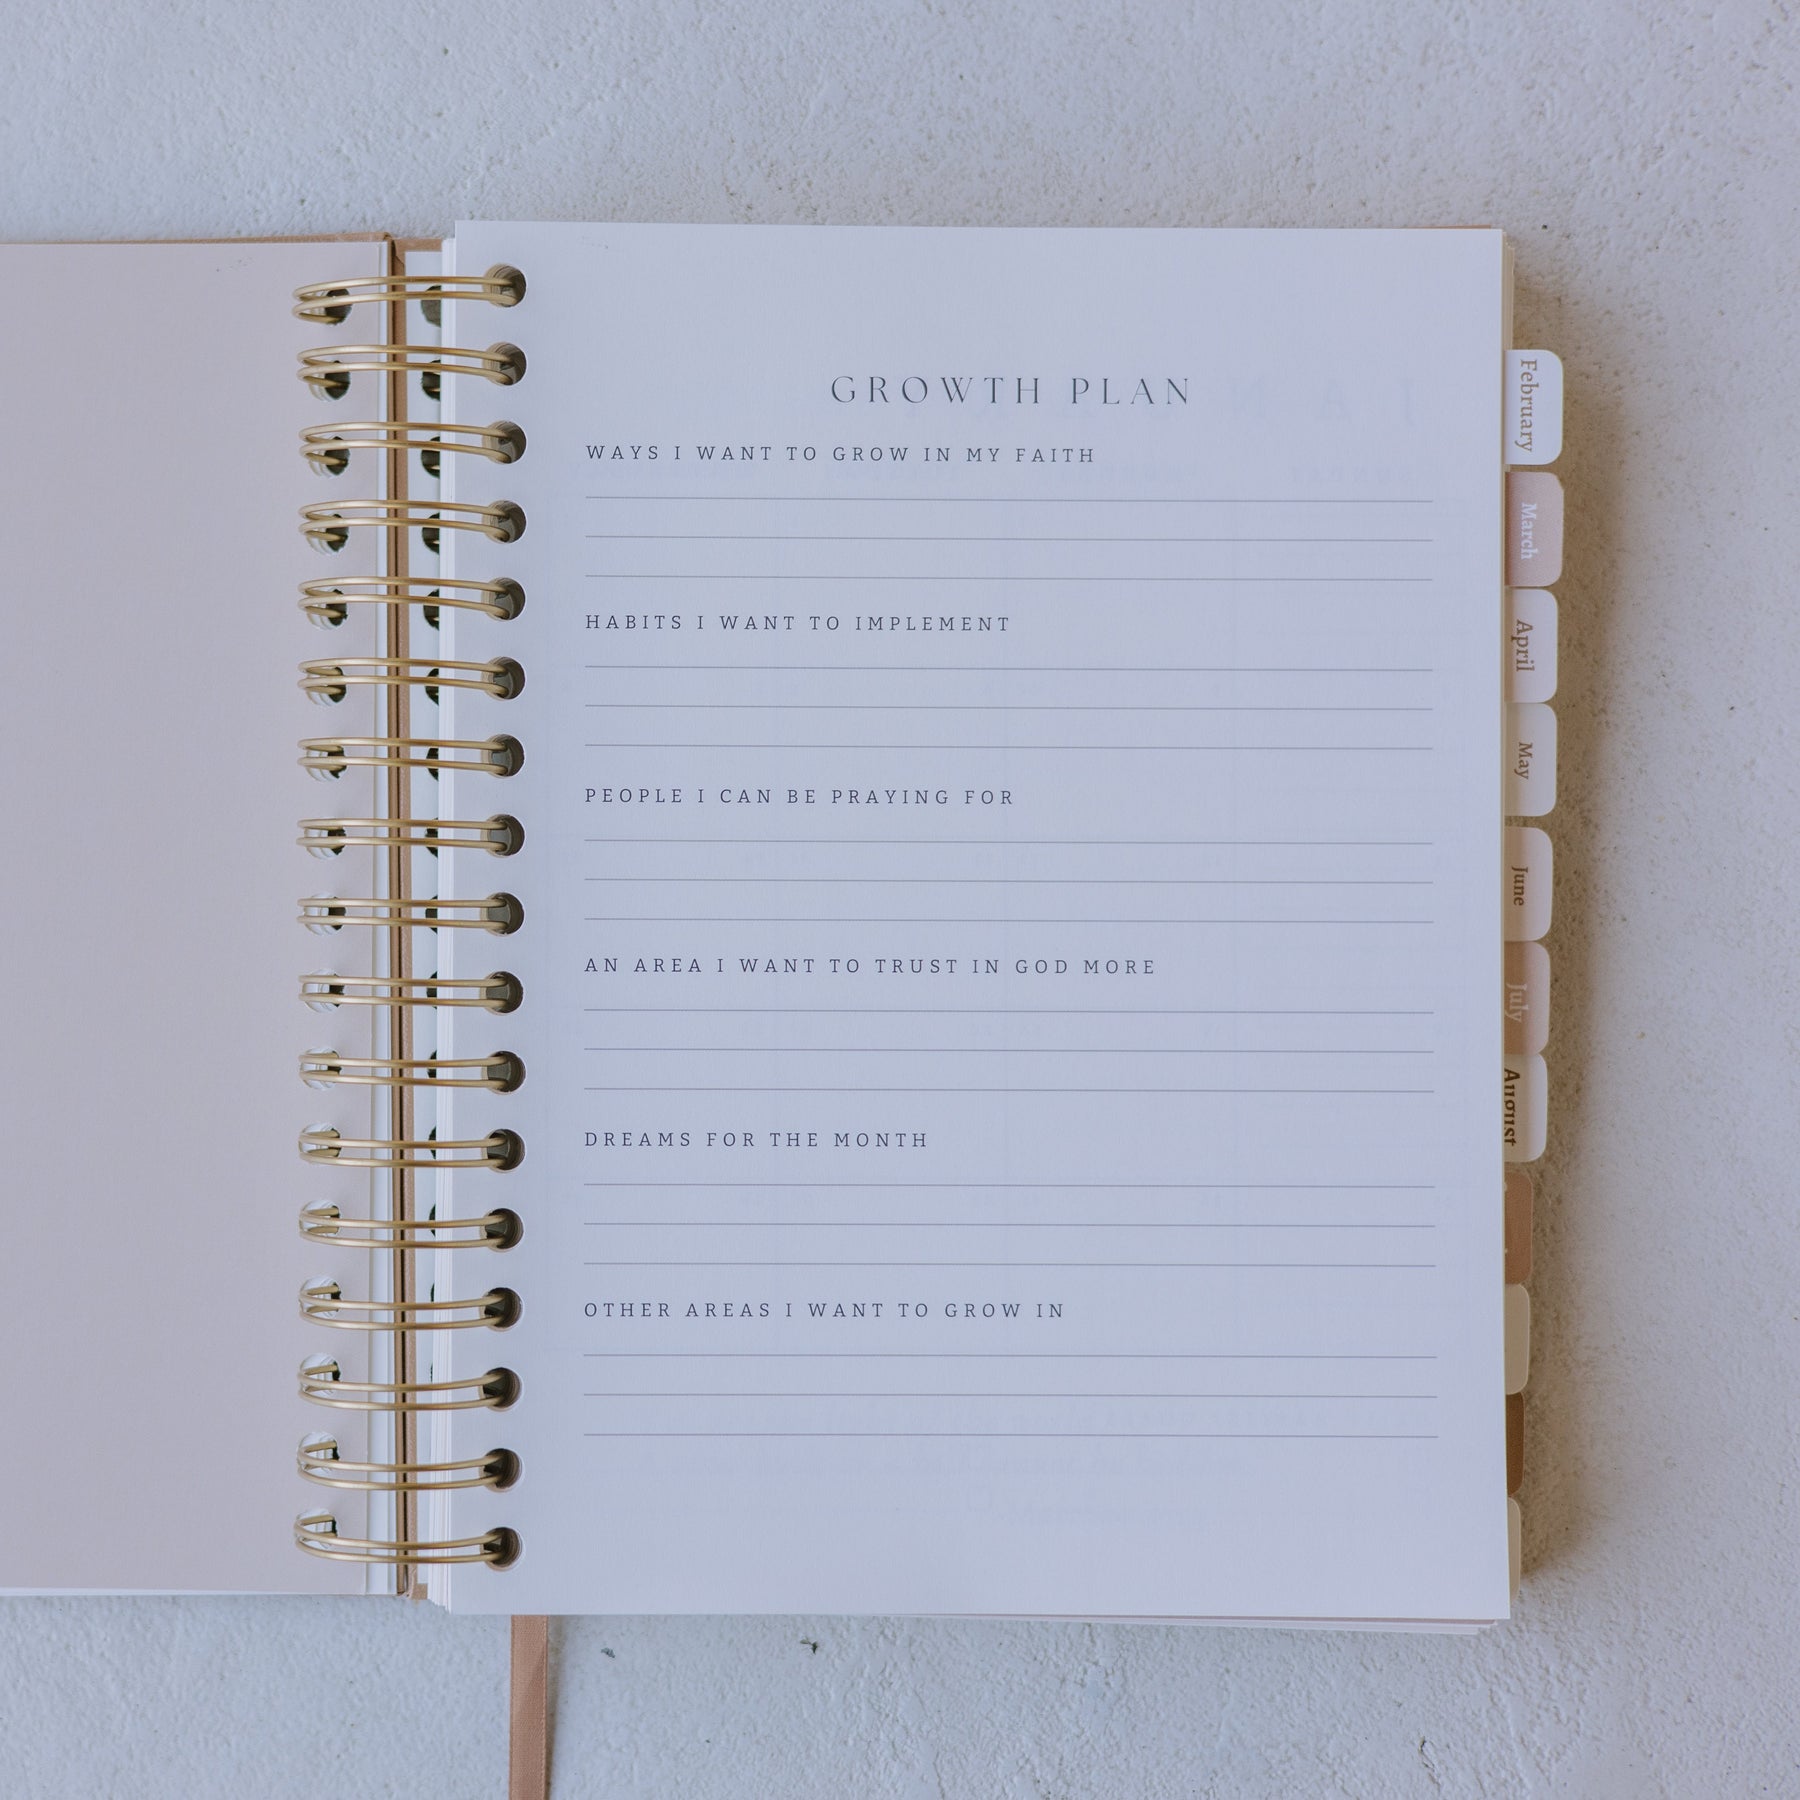 GROWTH PLAN
WAYS I WANT TO GROW IN MY FAITH
HABITS I WANT TO IMPLEMENT
PEOPLE I CAN BE PRAYING FOR
AN AREA I WANT TO TRUST IN GOD MORE
DREAMS FOR THE MONTH
OTHER AREAS I WANT TO GROW IN
February
March
April
May
June
July
August